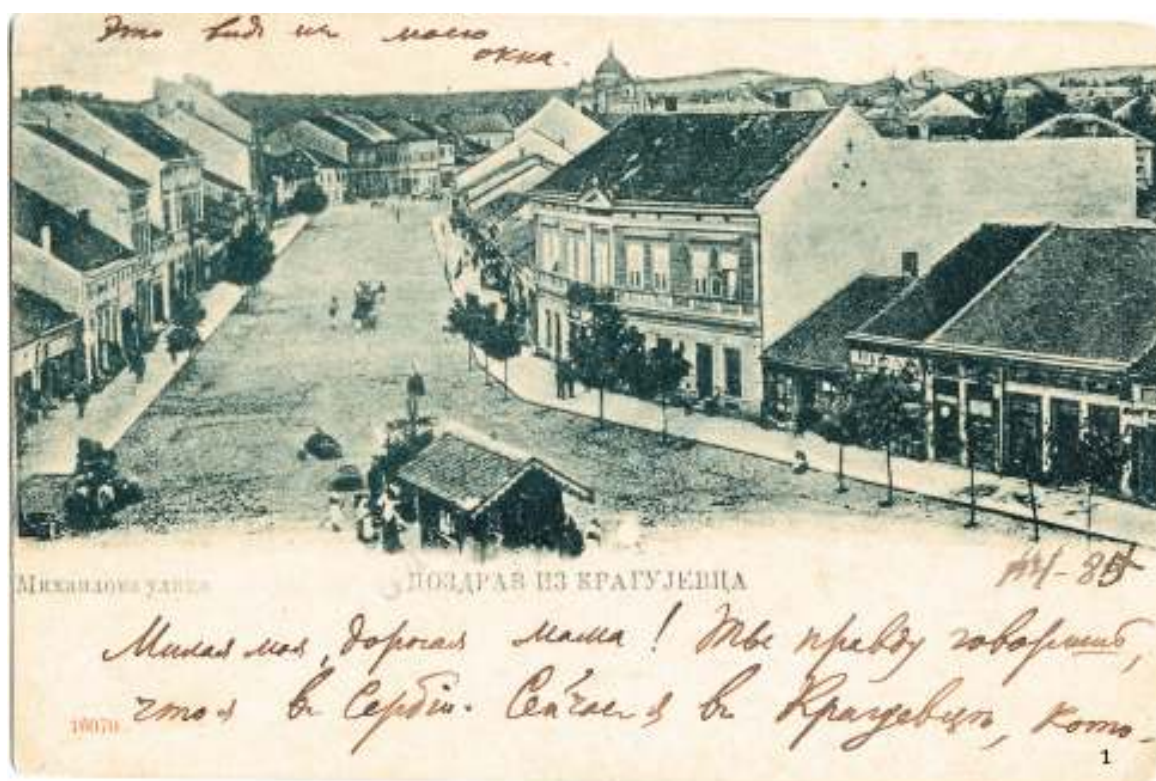 Это видъ из моего
окна.
Михаилова улица
ПОЗДРАВ ИЗ КРАГУЈЕВЦА
Милая моя, дорогая мама! Ты правду говоришь,
что я въ Сербіи. Сейчас я въ Крагуевцѣ, кото-
16070
1